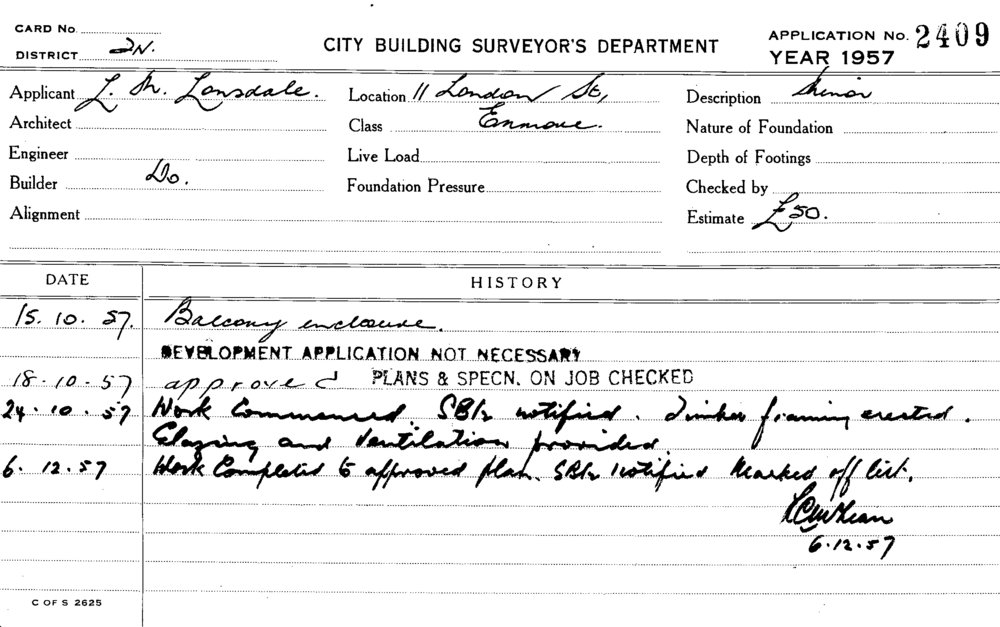 CARD No.
DISTRICT 2N.
CITY BUILDING SURVEYOR'S DEPARTMENT
APPLICATION No. 2409
YEAR 1957
Applicant L. M. Lonsdale. Location 11 London St, Description Minor
Architect Class Enmore. Nature of Foundation
Engineer Live Load Depth of Footings
Builder Do. Foundation Pressure Checked by
Alignment Estimate £50.
DATE HISTORY
15.10.57. Balcony enclosure.
DEVELOPMENT APPLICATION NOT NECESSARY
18-10-57 approved PLANS & SPECN. ON JOB CHECKED
24.10.57 Work Commenced. notified. Timber framing erected.
Glazing and Ventilation provided.
6.12.57 Work Completed to approved plan. notified Marked off list.
6.12.57
C OF S 2625